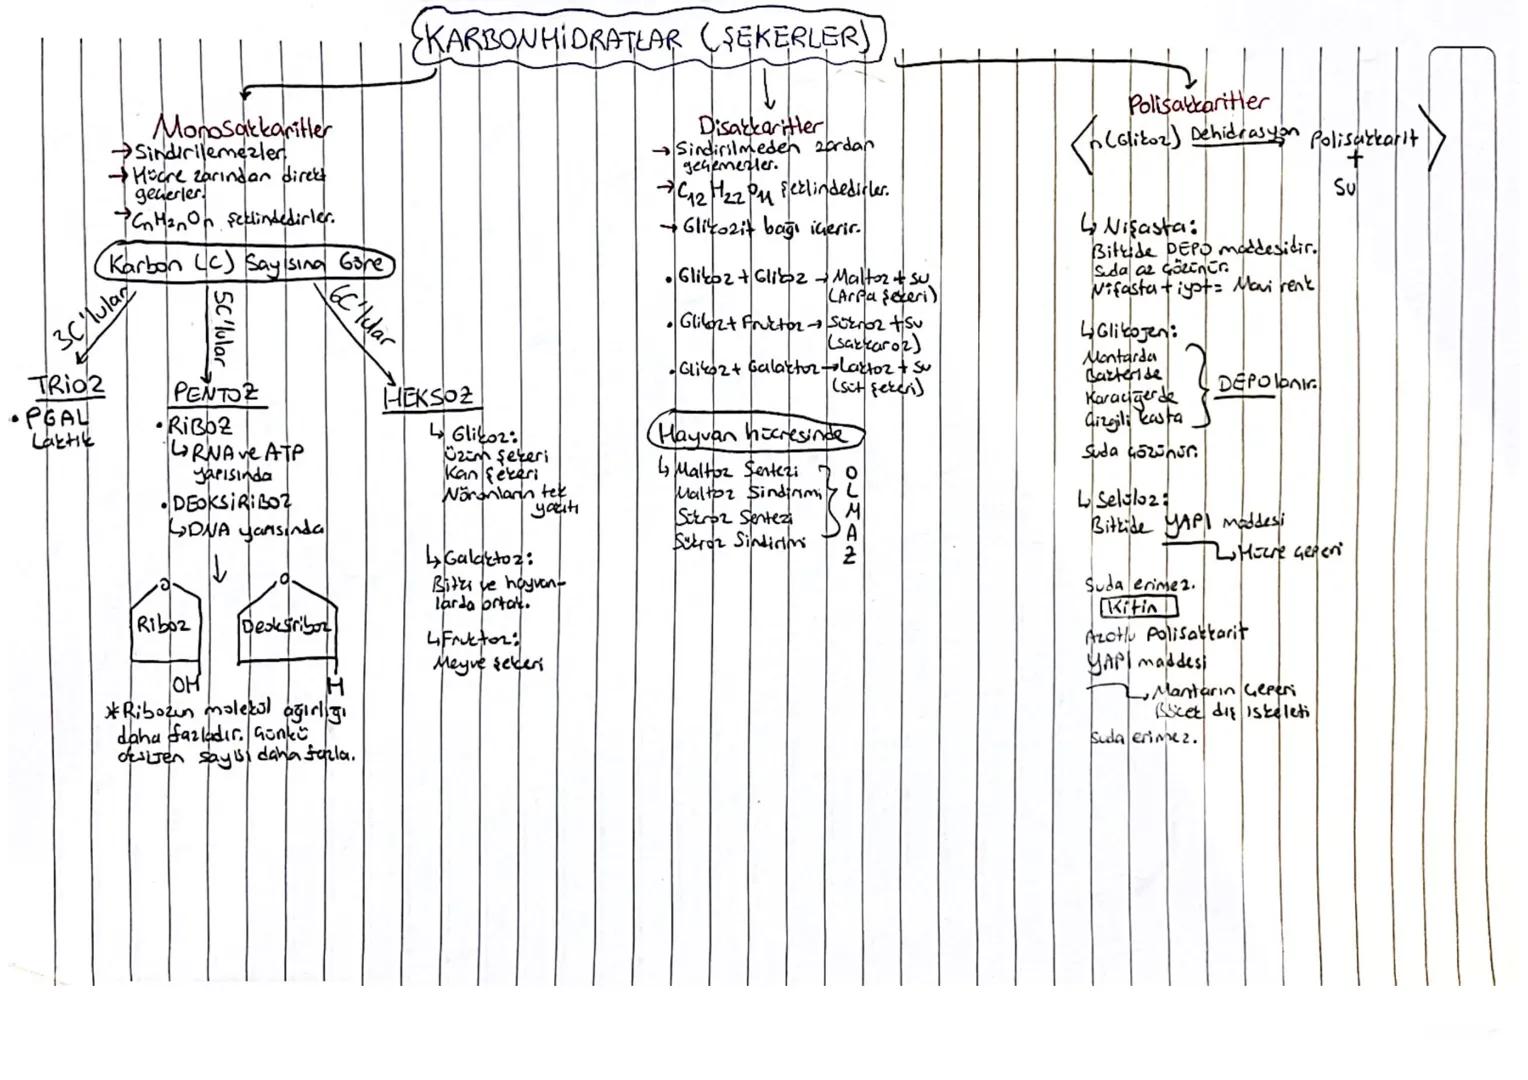 KARBONHİDRATLAR (ŞEKERLER)
Monosakkaritler
→ Sindirilemezler.
→ Hücre zarından direkt
geçerler.
→ CnH2nOn şeklindedirler.
Karbon (C) Sayısına Göre
3C'lular
5C'lular
6C'lular
TRİOZ
• PGAL
Laktik
PENTOZ
• RİBOZ
↳ RNA ve ATP
yapısında
• DEOKSİRİBOZ
↳ DNA yapısında
O
Riboz
OH
O
Deoksiriboz
H
* Ribozun molekül ağırlığı
daha fazladır. Çünkü
oksijen sayısı daha fazla.
HEKSOZ
↳ Glikoz:
Üzüm şekeri
Kan şekeri
Nöronların tek
yakıtı
↳ Galaktoz:
Bitki ve hayvan-
larda ortak.
↳ Fruktoz:
Meyve şekeri
Disakkaritler
→ Sindirilmeden zardan
geçemezler.
→ C12H22O11 şeklindedirler.
→ Glikozit bağı içerir.
• Glikoz + Glikoz → Maltoz + su
(Arpa şekeri)
• Glikoz + Fruktoz → Sükroz + su
(sakkaroz)
• Glikoz + Galaktoz → Laktoz + su
(süt şekeri)
Hayvan hücresinde
↳ Maltoz Sentezi
Maltoz Sindirimi
Sükroz Sentezi
Sükroz Sindirimi
OLMAZ
Polisakkaritler
n(Glikoz) Dehidrasyon Polisakkarit
+
Su
↳ Nişasta:
Bitkide DEPO maddesidir.
Suda az çözünür.
Nişasta + iyot = Mavi renk
↳ Glikojen:
Mantarda
Bakteride
Karaciğerde
Çizgili kasta
DEPOlanır.
Suda çözünür.
↳ Selüloz:
Bitkide YAPI maddesi
↳ Hücre çeperi
Suda erimez.
Kitin
Azotlu polisakkarit
YAPI maddesi
↳ Mantarın çeperi
Böcek dış iskeleti
Suda erimez.